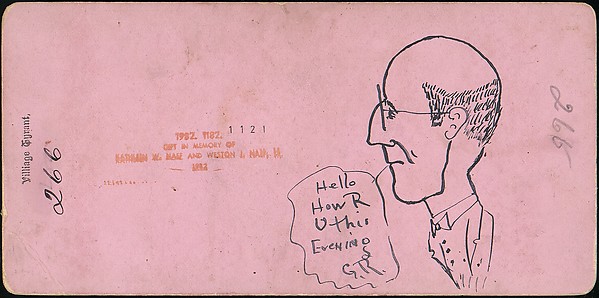 Village Tyrant,
266
1982. 1182. 1121
GIFT IN MEMORY OF
KATHRIN W. HAIZ AND WESTON J. NAEF, JR.
Hello
How R
U this
EveNING
266